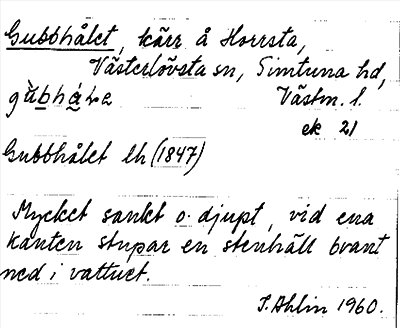 Gubbhålet, kärr å Horrsta,
Västerlövsta sn, Simtuna hd,
gùbhá̱ɫe Västm. l.
ek 21
Gubbhålet lh (1847)
Mycket sankt o. djupt, vid ena
kanten stupar en stenhäll brant
ned i vattnet.
S. Ahlin 1960.